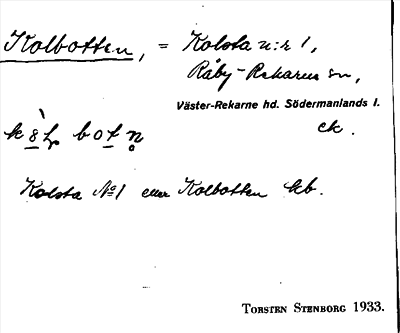 Kolbotten, = Kolsta n:r 1,
Råby-Rekarne sn,
Väster-Rekarne hd. Södermanlands l.
ek.
Kolsta No 1 eller Kolbotten kb.
TORSTEN STENBORG 1933.